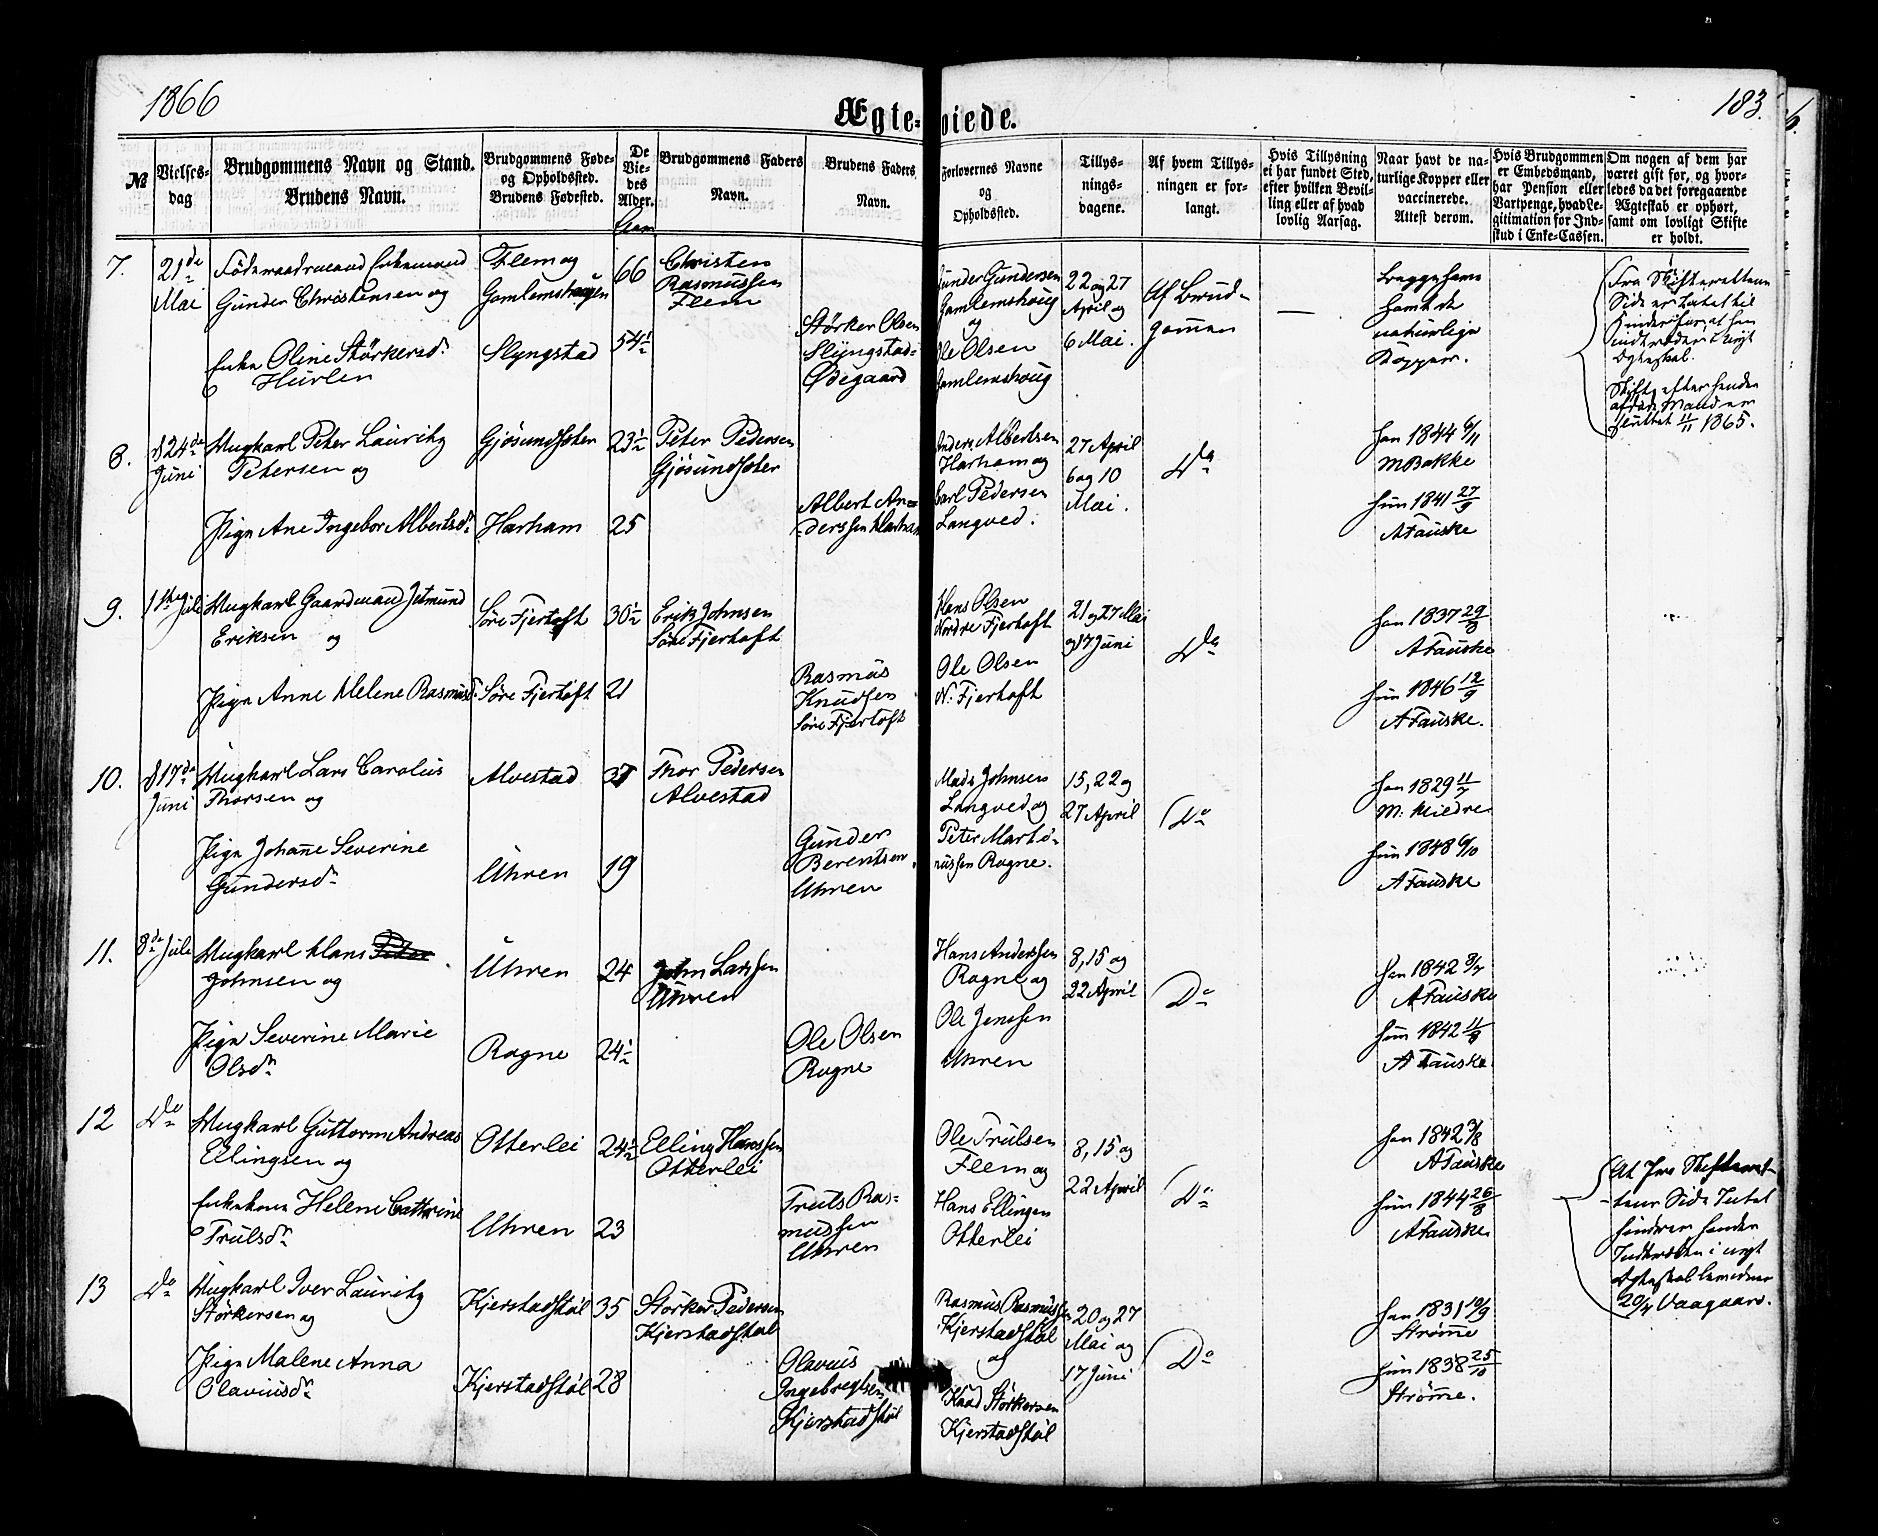 1866
183.
Ægteviede.
№
Vielses-
dag
Brudgommens Navn og Stand.
Brudens Navn.
Brudgommens Føde-
og Opholdssted.
Brudens Fødested.
De
Vie-
des
Alder.
Aar
Brudgommens Faders
Navn.
Brudens Faders
Navn.
Forlovernes Navne
og
Opholdssted.
Tillys-
nings-
dagene.
Af hvem Tillys-
ningen er for-
langt.
Hvis Tillysning
ei har fundet Sted,
efter hvilken Bevil-
ling eller af hvad
lovlig Aarsag.
Naar havt de na-
turlige Kopper eller
vaccinerede.
Attest derom.
Hvis Brudgommen
er Embedsmand,
har Pension eller
Vartpenge, hvad Le-
gitimation for Ind-
skud i Enke-Cassen.
Om nogen af dem har
været gift før, og hvor-
ledes da det foregaaende
Ægteskab er ophørt,
samt om lovligt Skifte
er holdt.
7.
21de
Mai
Føderaadmand Enkemand
Gunder Christensen og
Enke Oline Størkersd.
Hurlen
Flem og
Gamlemshougen
Slyngstad
66
54½
Christen
Rasmussen
Flem
Størker Olsen
Slyngstad-
Ødegaard
Gunder Gundersen
Gamlemshoug
og
Ole Olsen
Gamlemshoug
22 og 27
April og
6 Mai.
Af Brud-
gommen
—
Begge have
havt de
naturlige
Kopper.
Fra Skifterettens
Side er Intet til
Hinder for, at han
indtræder i nyt
Ægteskab.
Skifte efter hendes
afdøde Mand er
sluttet 11/11 1865.
8.
d 24de
Juni
Ungkarl Peter Lauritz
Petersen og
Pige Ane Ingebor Albertsd.
Gjøsundsæter
Harham
23½
25
Peter Pedersen
Gjøsundsæter
Albert An-
derssen Harham
Anders Albertsen
Harham og
Carl Pedersen
Langved.
27 April
6 og 10
Mai.
Do
han 1844 6/11
M Bakke
hun 1841 27/9
A Fauske
9.
1ste Juli
Ungkarl Gaardmand Jetmund
Eriksen og
Pige Anne Helene Rasmusd.
Søre Fjertoft
Søre Fjertoft
30½
21
Erik Johnsen
Søre Fjertoft
Rasmus
Knudsen
Søre Fjertoft
Hans Olsen
Nordre Fjertoft
Ole Olsen
N: Fjertoft
21 og 27 Mai
og 17 Juni
Do
han 1837 29/8
A Fauske
hun 1846 12/9
A Fauske.
10.
d 17de
Juni
Ungkarl Lars Carolus
Thorsen og
Pige Johanne Severine
Gundersd.
Alvestad
Uhren
37
19
Thor Pedersen
Alvestad
Gunder
Berentsen
Uhren
Mads Johnsen
Langved og
Peter Marti-
nussen Rogne.
15, 22 og
27 April
Do
han 1829 11/7
M: Miedre
hun 1848 6/10
A Fauske
11.
8de Juli
Ungkarl Hans Peter
Johnsen og
Pige Severine Marie
Olsd.
Uhren
Rogne
24
24½
John Larssen
Uhren
Ole Olsen
Rogne
Hans Anderssen
Rogne og
Ole Jenssen
Uhren
8, 15 og
22 April
Do
han 1842 8/7
A Fauske
hun 1842 11/9
A Fauske.
12
Do
Ungkarl Guttorm Andreas
Ellingsen og
Enkekone Helene Cathrine
Trulsd.
Otterlei
Uhren
24½
23
Elling Hanssen
Otterlei
Truls Ras-
mussen
Uhren
Ole Trulsen
Flem og
Hans Ellingen
Otterlei
8, 15 og
22 April
Do
han 1842 3/8
A Fauske
hun 1844 26/8
A Fauske
At fra Skifteret-
tens Side Intet
hindrer hendes
Indtræden i nyt
Ægteskab bevidner
20/4 Vaagaard.
13
Do
Ungkarl Iver Lauritz
Størkersen og
Pige Malene Anna
Olavusd.
Kjerstadstøl
Kjerstadstøl
35
28
Størker Pedersen
Kjerstadstøl
Olavus
Ingebregtsen
Kjerstadstøl
Rasmus Rasmussen
Kjerstadstøl
og
Knud Størkersen
Kjerstadstøl
20 og 27
Mai og
17 Juni
Do
han 1831 19/9
Strømme
hun 1838 25/10
Strømme.